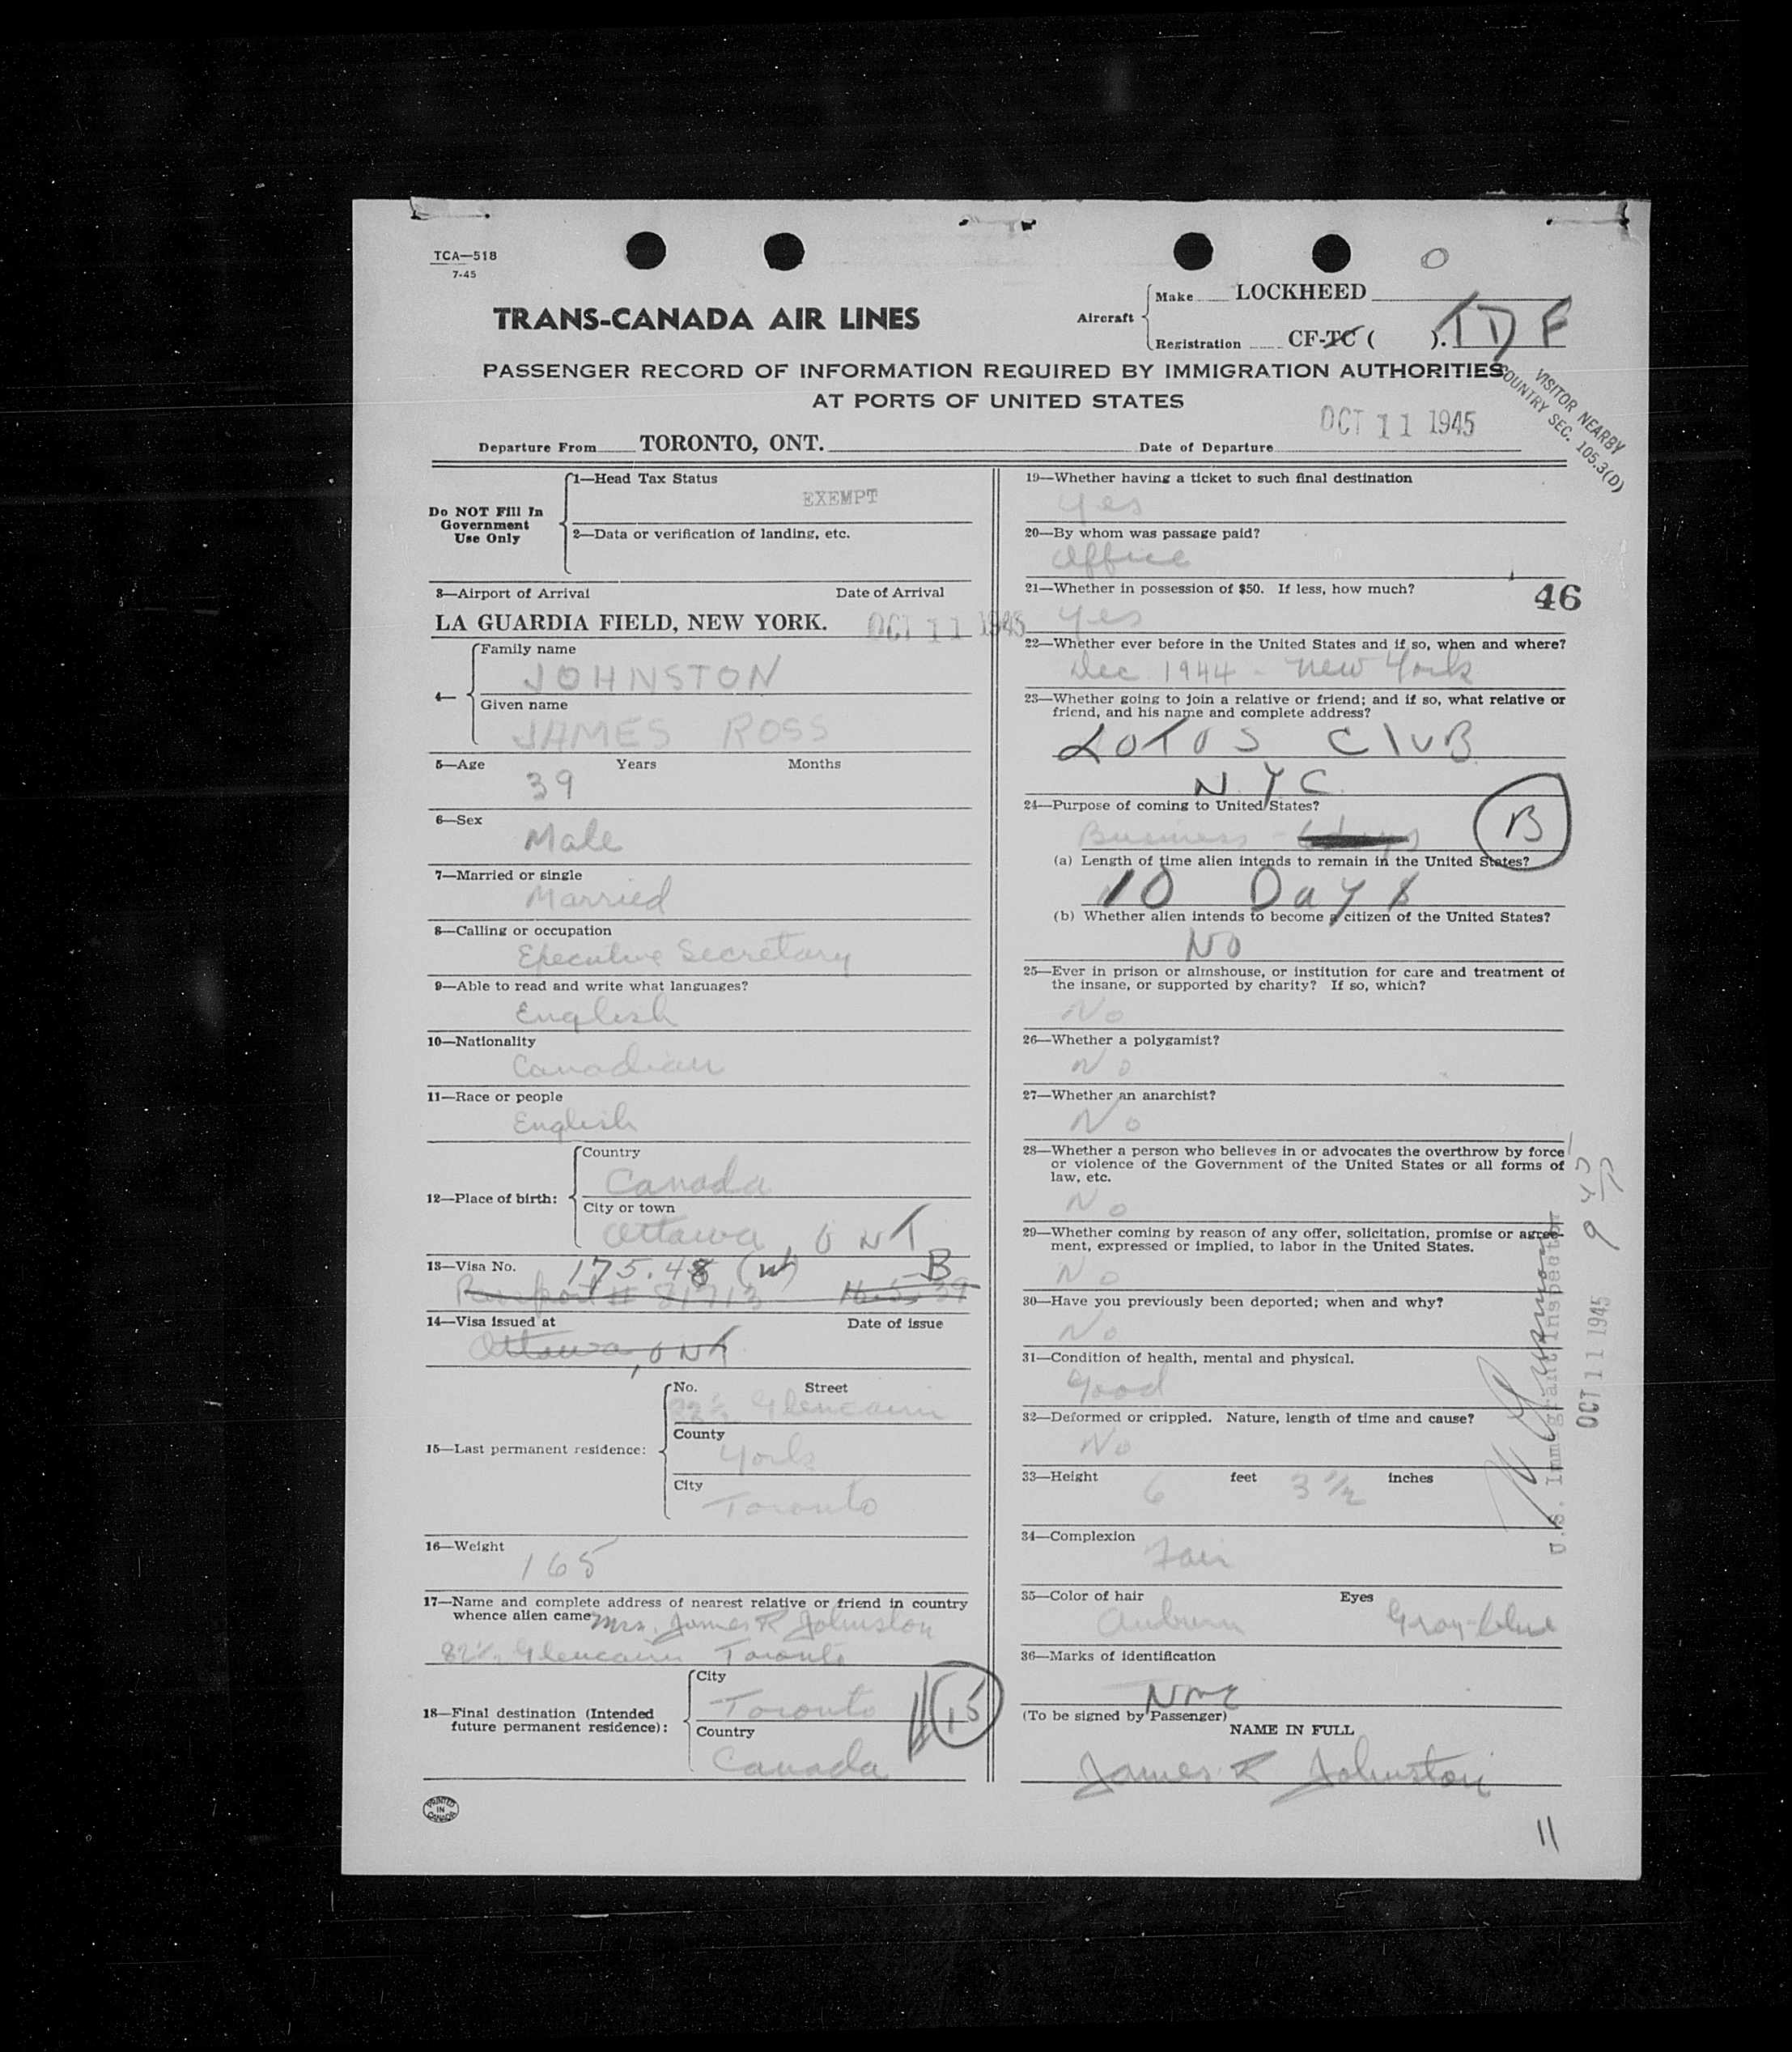 TCA—518
7-45
O
TRANS-CANADA AIR LINES
Aircraft
Make LOCKHEED
Registration CF-TC ( ). TDF
PASSENGER RECORD OF INFORMATION REQUIRED BY IMMIGRATION AUTHORITIES
AT PORTS OF UNITED STATES
VISITOR NEARBY
COUNTRY SEC. 105.3(D)
Departure From TORONTO, ONT. Date of Departure OCT 11 1945
Do NOT Fill In
Government
Use Only
1—Head Tax Status
EXEMPT
2—Data or verification of landing, etc.
3—Airport of Arrival Date of Arrival
LA GUARDIA FIELD, NEW YORK. OCT 11 1945
4—
Family name
JOHNSTON
Given name
JAMES ROSS
5—Age Years Months
39
6—Sex
Male
7—Married or single
Married
8—Calling or occupation
Executive Secretary
9—Able to read and write what languages?
English
10—Nationality
Canadian
11—Race or people
English
12—Place of birth:
Country
Canada
City or town
Ottawa, ONT
13—Visa No. 175.48 B
Passport # 81713 16.5.39
14—Visa issued at Date of issue
Ottawa, ONT
15—Last permanent residence:
No. Street
82½ Glencairn
County
York
City
Toronto
16—Weight
165
17—Name and complete address of nearest relative or friend in country
whence alien came Mrs. James R Johnston
82½ Glencairn Toronto
18—Final destination (Intended
future permanent residence):
City
Toronto
Country
Canada
15
PRINTED
IN
CANADA
19—Whether having a ticket to such final destination
Yes
20—By whom was passage paid?
Office
21—Whether in possession of $50. If less, how much?
46
Yes
22—Whether ever before in the United States and if so, when and where?
Dec 1944 - New York
23—Whether going to join a relative or friend; and if so, what relative or
friend, and his name and complete address?
LOTUS CLUB
N.Y.C.
24—Purpose of coming to United States?
Business - 6 days
B
(a) Length of time alien intends to remain in the United States?
10 Days
(b) Whether alien intends to become a citizen of the United States?
NO
25—Ever in prison or almshouse, or institution for care and treatment of
the insane, or supported by charity? If so, which?
No
26—Whether a polygamist?
No
27—Whether an anarchist?
No
28—Whether a person who believes in or advocates the overthrow by force
or violence of the Government of the United States or all forms of
law, etc.
No
29—Whether coming by reason of any offer, solicitation, promise or agree-
ment, expressed or implied, to labor in the United States.
No
30—Have you previously been deported; when and why?
No
31—Condition of health, mental and physical.
Good
32—Deformed or crippled. Nature, length of time and cause?
No
33—Height 6 feet 3½ inches
34—Complexion
Fair
35—Color of hair Eyes
Auburn Gray-blue
36—Marks of identification
None
(To be signed by Passenger)
NAME IN FULL
James R Johnston
U.S. Immigrant Inspector
OCT 11 1945
11